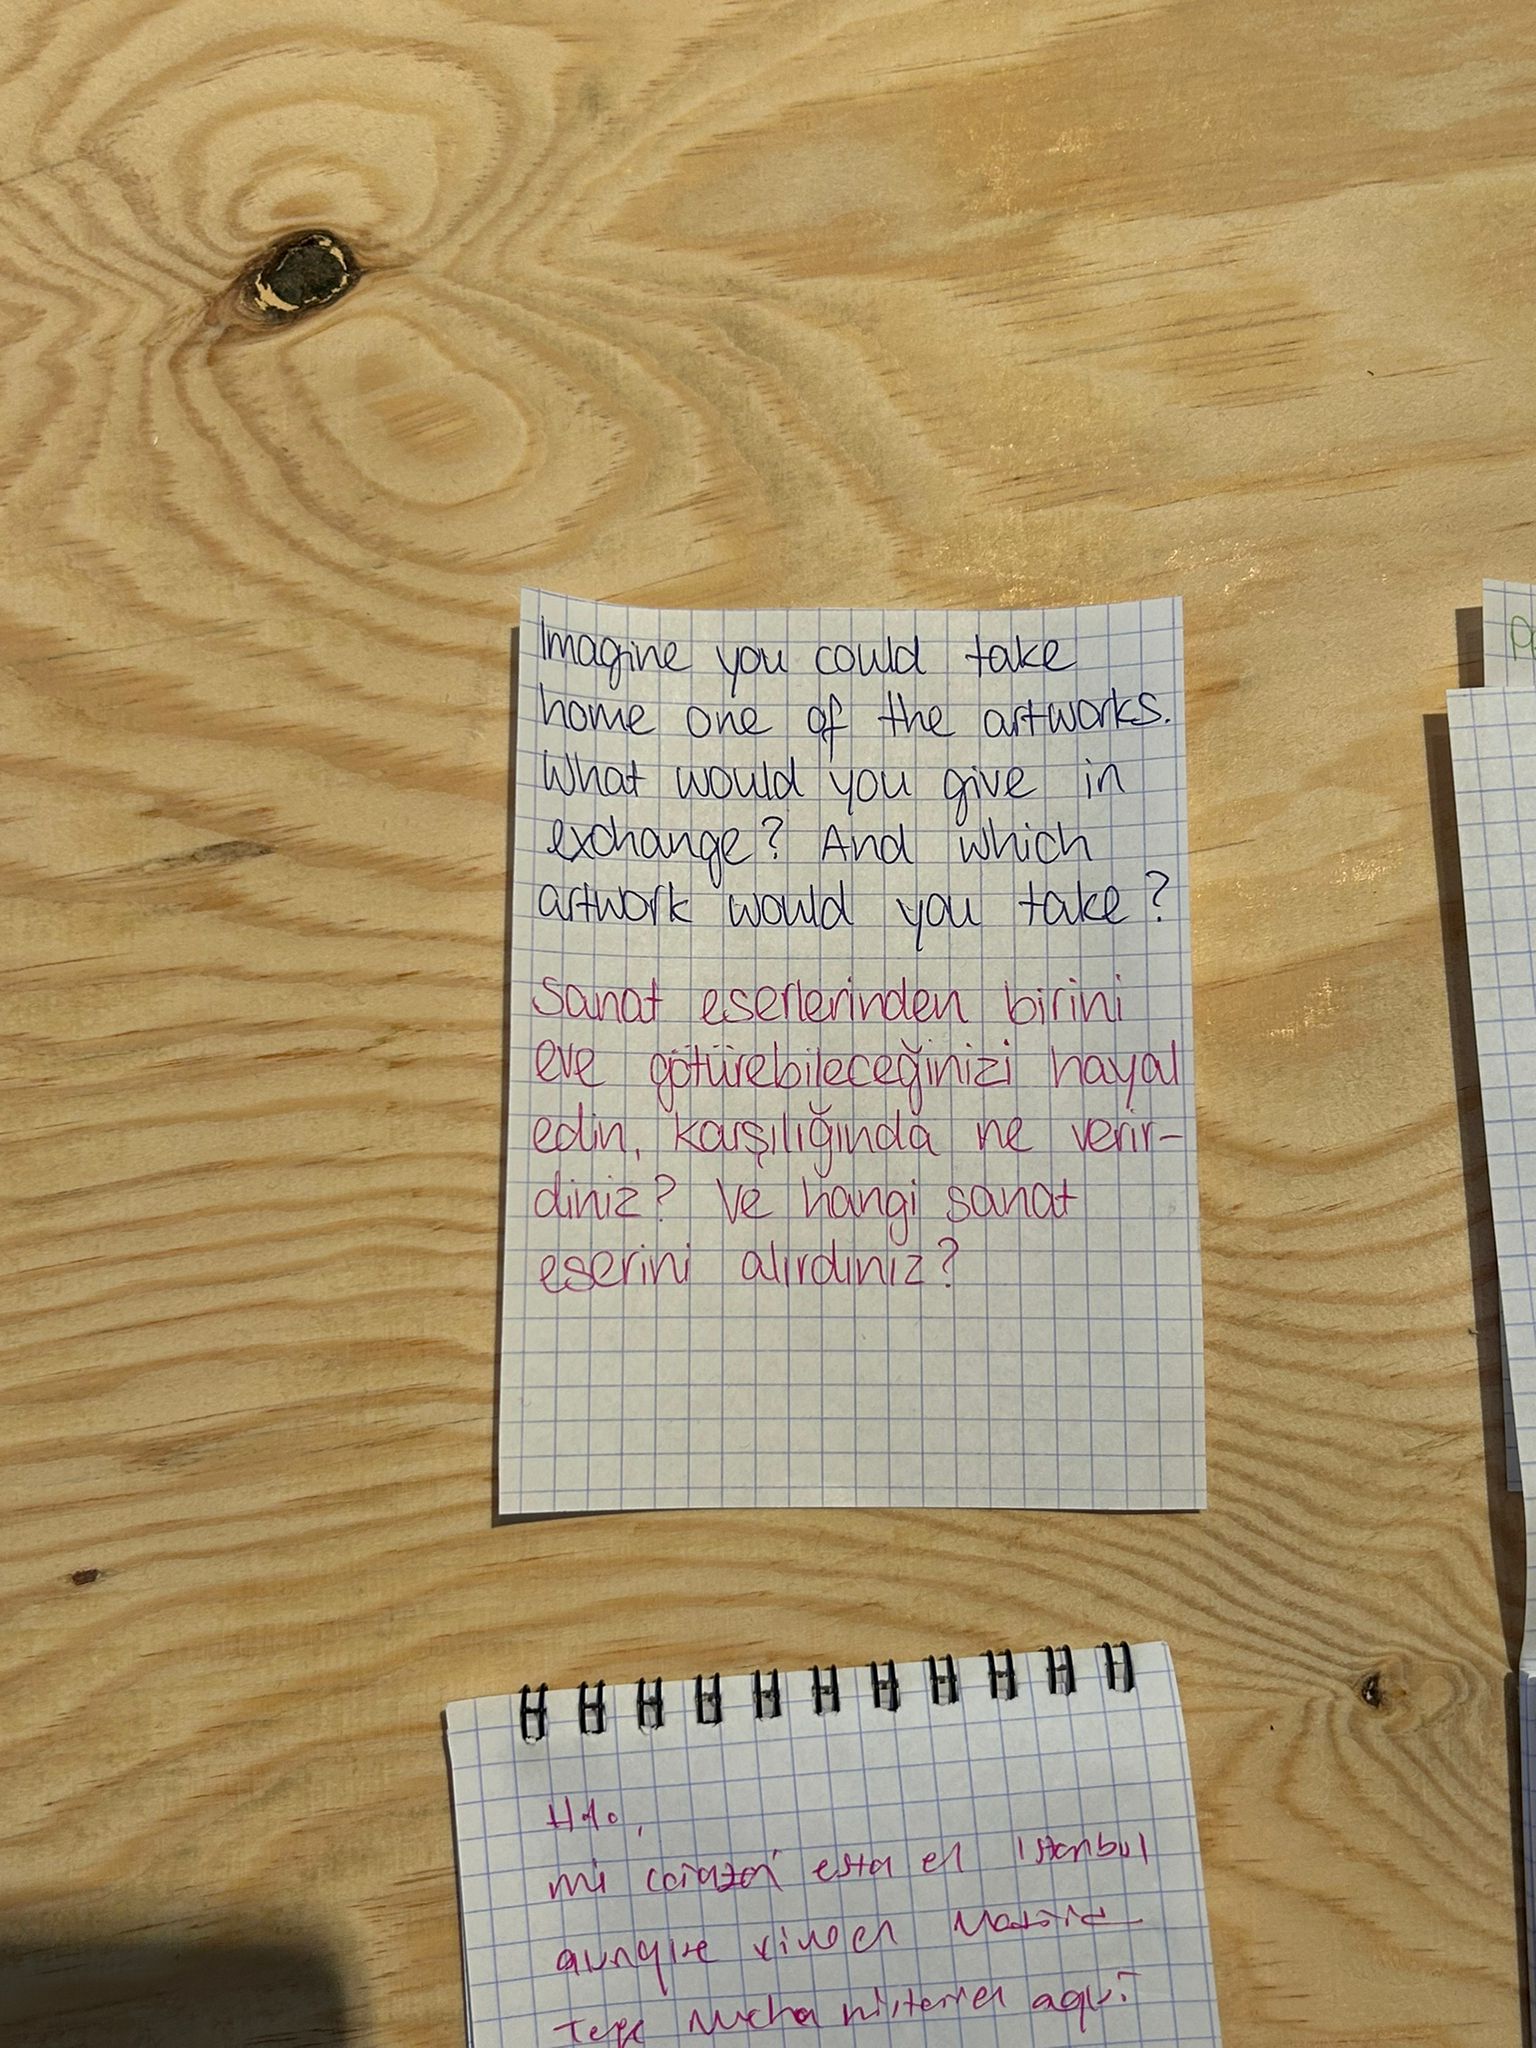 Imagine you could take
home one of the artworks.
What would you give in
exchange? And which
artwork would you take?
Sanat eserlerinden birini
eve götürebileceğinizi hayal
edin, karşılığında ne verir-
diniz? Ve hangi sanat
eserini alırdınız?
mi corazón esta en Istanbul
aunque vivo en Madrid
mucha aquí